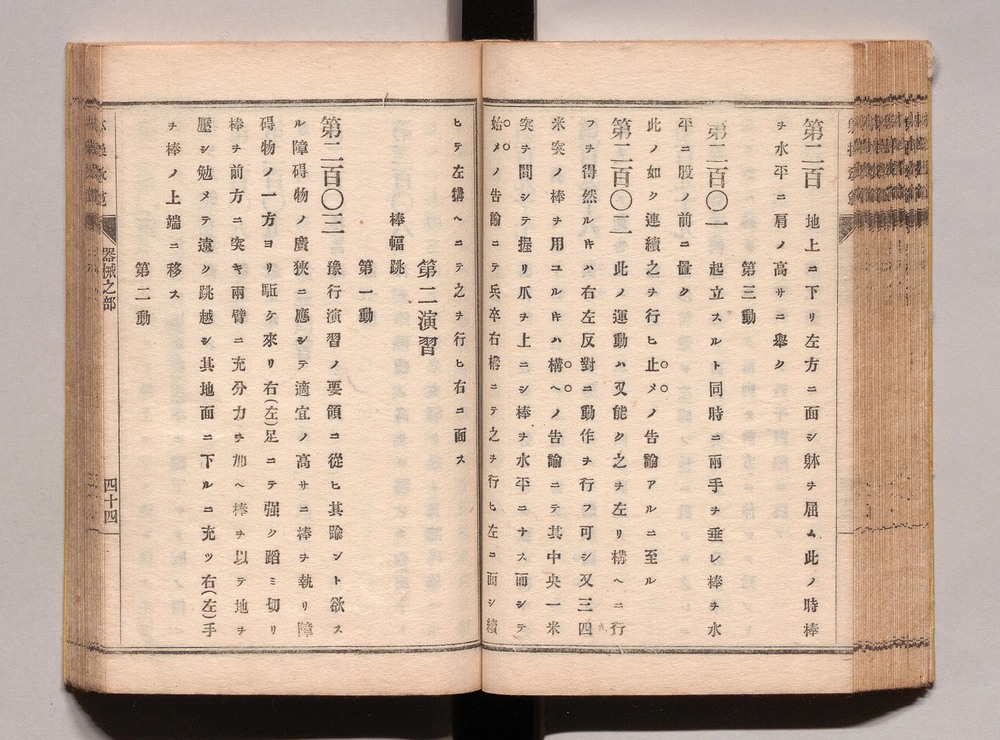 第二百　地上ニ下リ左方ニ面シ躰ヲ屈ム此ノ時棒
ヲ水平ニ肩ノ高サニ舉ク
第三動
第二百〇一　起立スルト同時ニ兩手ヲ垂レ棒ヲ水
平ニ股ノ前ニ置ク
此ノ如ク連續之ヲ行ヒ止メノ告諭アルニ至ル
第二百〇二　此ノ運動ハ又能ク之ヲ左リ構ヘニ行
フヲ得然ルキハ右左反對ニ動作ヲ行フ可シ又三四
米突ノ棒ヲ用ユルキハ構ヘノ告諭ニテ其中央一米
突ヲ間シテ握リ爪ヲ上ニシ棒ヲ水平ニナス而シテ
始メノ告諭ニテ兵卒右構ニテ之ヲ行ヒ左ニ面シ續
ヒテ左構ヘニテ之ヲ行ヒ右ニ面ス
第二演習
棒幅跳
第一動
第二百〇三　豫行演習ノ要領ニ從ヒ其踰ント欲ス
ル障碍物ノ廣狹ニ應シテ適宜ノ高サニ棒ヲ執リ障
碍物ノ一方ヨリ駈ケ來リ右(左)足ニテ强ク蹈ミ切リ
棒ヲ前方ニ突キ兩臂ニ充分力ヲ加ヘ棒ヲ以テ地ヲ
壓シ勉メテ遠ク跳越シ其地面ニ下ルニ充ツ右(左)手
ヲ棒ノ上端ニ移ス
第二動
器械之部
四十四